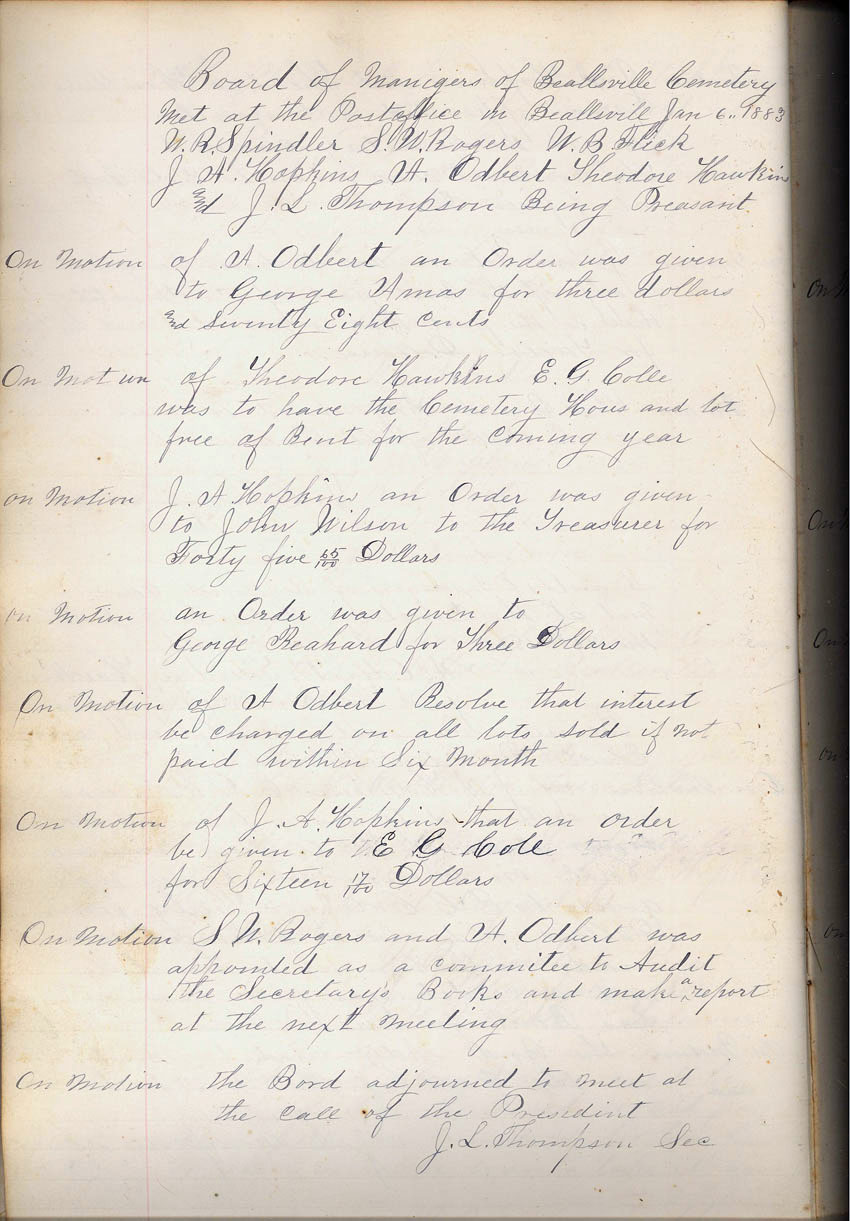 Board of Manigers of Beallsville Cemetery
Met at the Postoffice in Beallsvill Jan 6,, 1883
W. R. Spindler S. W. Rogers W. B. Flick
J A. Hopkins A. Odbert Theodore Hawkins
and J. L. Thompson Being Preasant
On Motion of A. Odbert an Order was given
to George Amas for three dollars
and Seventy Eight Cents
On Motion of Theodore Hawkins E. G. Colle
was to have the Cemetery Hous and lot
free of Rent for the coming year
on Motion J. A Hopkins an Order was given
to John Wilson to the Treasurer for
Forty five 65/100 Dollars
on Motion an Order was given to
George Reahard for Three Dollars
On Motion of A Odbert Resolve that interest
be charged on all lots sold if not
paid within Six Month
On Motion of J. A. Hopkins that an order
be given to E G Cole
for Sixteen 17/100 Dollars
On Motion S W. Rogers and A. Odbert was
appointed as a commitee to Audit
the Secretarys Books and make a report
at the next meeting
On Motion the Bord adjourned to meet at
the call of the Presedint
J. L. Thompson Sec